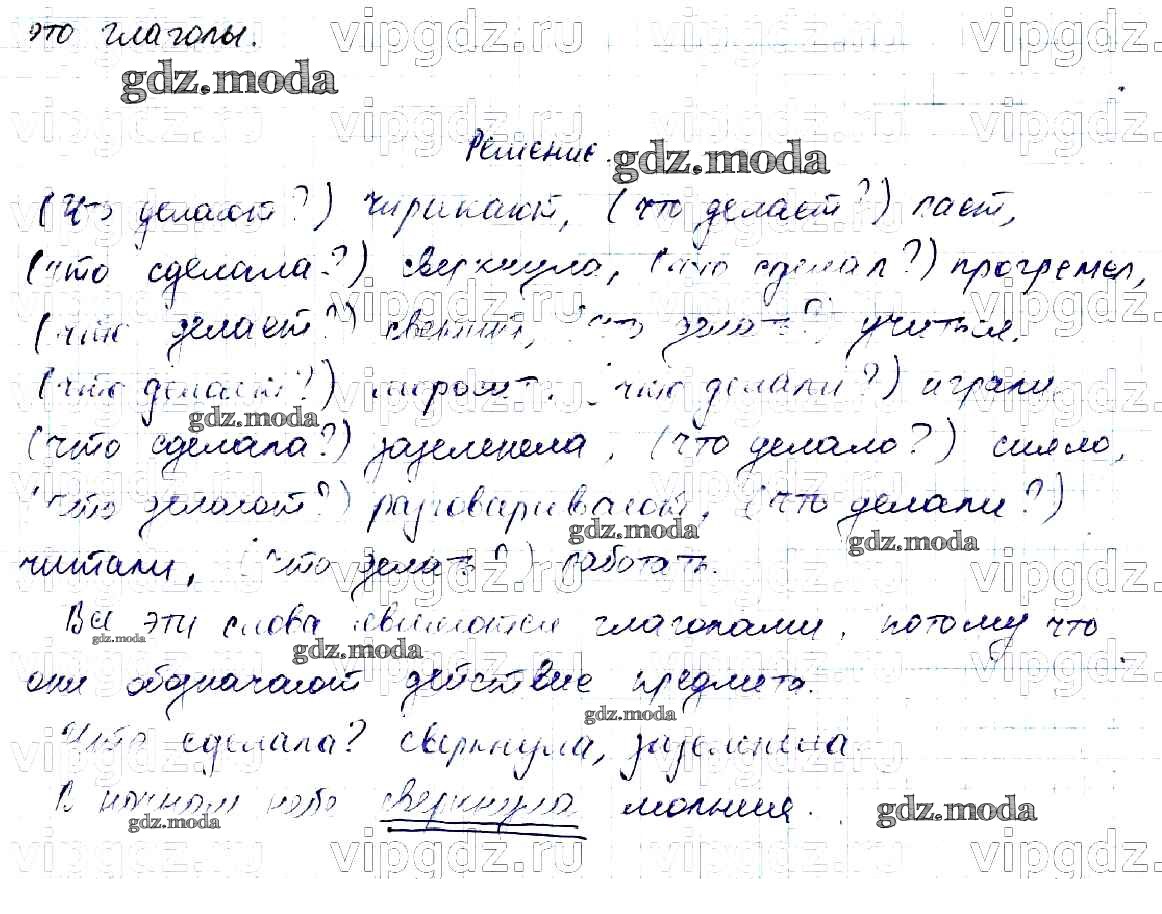 это глаголы.
gdz.moda
Решение. gdz.moda
(Что делают?) чирикают, (что делает?) поёт,
(что сделала?) сверкнула, (что сделал?) прогремел,
(что делает?) светит, (что делать?) учиться.
(что делает?) моросит, (что делали?) играли,
gdz.moda
(что сделала?) зазеленела, (что делало?) сияло,
(что делают?) разговаривают, (что делали?)
gdz.moda gdz.moda
читали, (что делать?) работать.
Все эти слова являются глаголами, потому что
gdz.moda gdz.moda
они обозначают действие предмета.
gdz.moda
Что сделала? сверкнула, зазеленела
В ночном небе сверкнула молния.
gdz.moda gdz.moda
vipgdz.ru vipgdz.ru vipgdz.ru